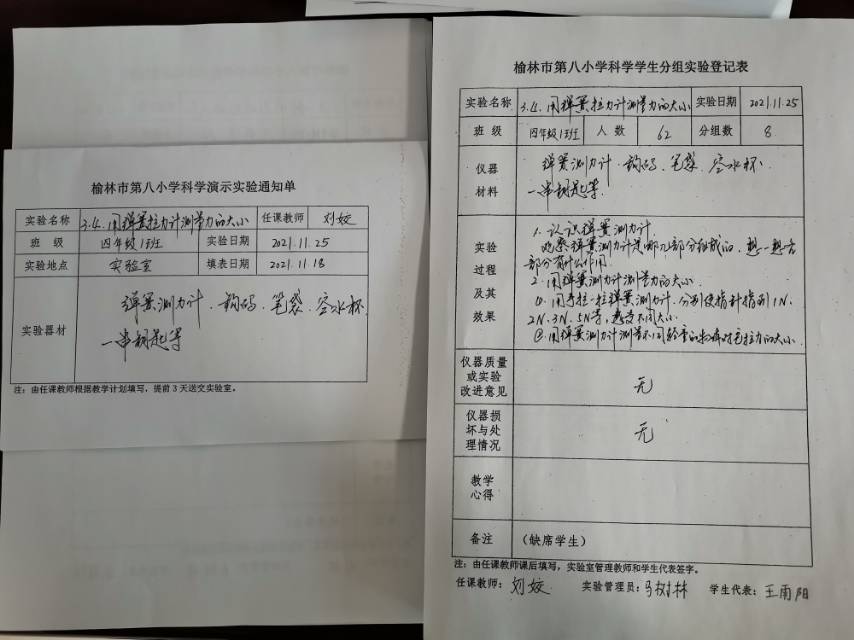 榆林市第八小学科学演示实验通知单
实验名称 3.4.用弹簧拉力计测量力的大小 任课教师 刘姣
班 级 四年级1班 实验日期 2021.11.25
实验地点 实验室 填表日期 2021.11.18
实验器材 弹簧测力计、钩码、笔袋、空水杯
一串钥匙等
注：由任课教师根据教学计划填写，提前3天送交实验室。
榆林市第八小学科学学生分组实验登记表
实验名称 3.4.用弹簧拉力计测量力的大小 实验日期 2021.11.25
班 级 四年级1班 人 数 62 分组数 8
仪器
材料
弹簧测力计、钩码、笔袋、空水杯、
一串钥匙等
实验
过程
及其
效果
1.认识弹簧测力计.
观察弹簧测力计是哪几部分组成的，想一想各
部分有什么作用.
2.用弹簧测力计测量力的大小.
①.用手拉一拉弹簧测力计.分别使指针指到1N、
2N、3N、5N等，感受不同大小.
②.用弹簧测力计测量不同轻重的物体对它拉力的大小.
仪器质量
或实验
改进意见
无
仪器损
坏与处
理情况
无
教学
心得
备注 （缺席学生）
注：由任课教师课后填写，实验室管理教师和学生代表签字。
任课教师：刘姣 实验管理员：马树林 学生代表：王雨阳